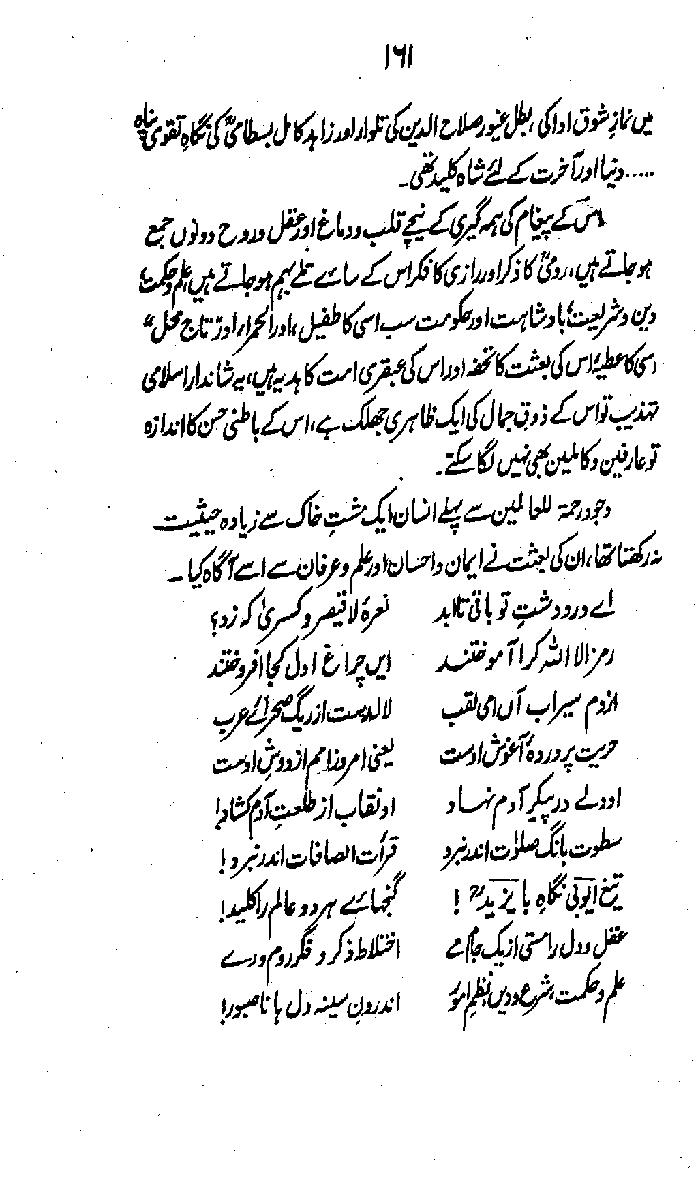 ۱۶۱
میں نمازِ شوق ادا کی، بطل غیور صلاح الدین کی تلوار اور زاہد کامل بسطامیؒ کی نگاہِ تقویٰ پناہ
..... دنیا اور آخرت کے لئے شاہ کلید تھی۔
اس کے پیغام کی ہمہ گیری کے نیچے قلب و دماغ اور عقل و روح دونوں جمع
ہو جاتے ہیں، رومیؒ کا ذکر اور رازی کا فکر اس کے سائے تلے بہم ہو جاتے ہیں، علم و حکمت،
دین و شریعت، بادشاہت اور حکومت سب اسی کا طفیل، اور الحمراء اور "تاج محل"
اسی کا عطیہ، اس کی بعثت کا تحفہ اور اس کی عبقری امت کا ہدیہ ہیں، یہ شاندار اسلامی
تہذیب تو اس کے ذوقِ جمال کی ایک ظاہری جھلک ہے، اس کے باطنی حسن کا اندازہ
تو عارفین و کاملین بھی نہیں لگا سکتے۔
وجود رحمۃ للعالمین سے پہلے انسان ایک مشتِ خاک سے زیادہ حیثیت
نہ رکھتا تھا، ان کی بعثت نے ایمان و احسان اور علم و عرفان سے اسے آگاہ کیا۔
اے در و دشتِ تو باقی تا ابد نعرۂ لا قیصر و کسریٰ کہ زد؟
رمز الا اللہ کرا آموختند ایں چراغ اول کجا افروختند
از دم سیراب آں امی لقب لالہ رست از ریگ صحرائے عرب
حریت پروردۂ آغوش اوست یعنی امروز امم از دوش اوست
او دلے در پیکرِ آدم نہاد او نقاب از طلعتِ آدم کشاد!
سطوت بانگ صلوٰت اندر نبرد قرأت الصافات اندر نبرد!
تیغ ایوبی نگاہِ بایزیدؒ! گنجہائے ہر دو عالم را کلید!
عقل و دل را مستی از یک جام مے اختلاط ذکر و فکر روم و رے
علم و حکمت، شرع و دیں، نظمِ امور اندرون سینہ دل ہا ناصبور!